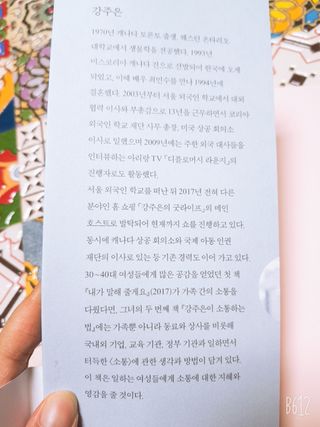 강주은
1970년 캐나다 토론토 출생. 웨스턴 온타리오
대학교에서 생물학을 전공했다. 1993년
미스코리아 캐나다 진으로 선발되어 한국에 오게
되었고, 이때 배우 최민수를 만나 1994년에
결혼했다. 2003년부터 서울 외국인 학교에서 대외
협력 이사와 부총감으로 13년을 근무하면서 코리아
외국인 학교 재단 사무 총장, 미국 상공 회의소
이사로 일했으며 2009년에는 주한 외국 대사들을
인터뷰하는 아리랑 TV 「디플로머시 라운지」의
진행자로도 활동했다.
서울 외국인 학교를 떠난 뒤 2017년 전혀 다른
분야인 홈 쇼핑 「강주은의 굿라이프」의 메인
호스트로 발탁되어 현재까지 쇼를 진행하고 있다.
동시에 캐나다 상공 회의소와 국제 아동 인권
재단의 이사로 있는 등 기존 경력도 이어 가고 있다.
30~40대 여성들에게 많은 공감을 얻었던 첫 책
『내가 말해 줄게요』(2017)가 가족 간의 소통을
다뤘다면, 그녀의 두 번째 책 『강주은이 소통하는
법』에는 가족뿐 아니라 동료와 상사를 비롯해
국내외 기업, 교육 기관, 정부 기관과 일하면서
터득한 <소통>에 관한 생각과 방법이 담겨 있다.
이 책은 일하는 여성들에게 소통에 대한 지혜와
영감을 줄 것이다.
B612